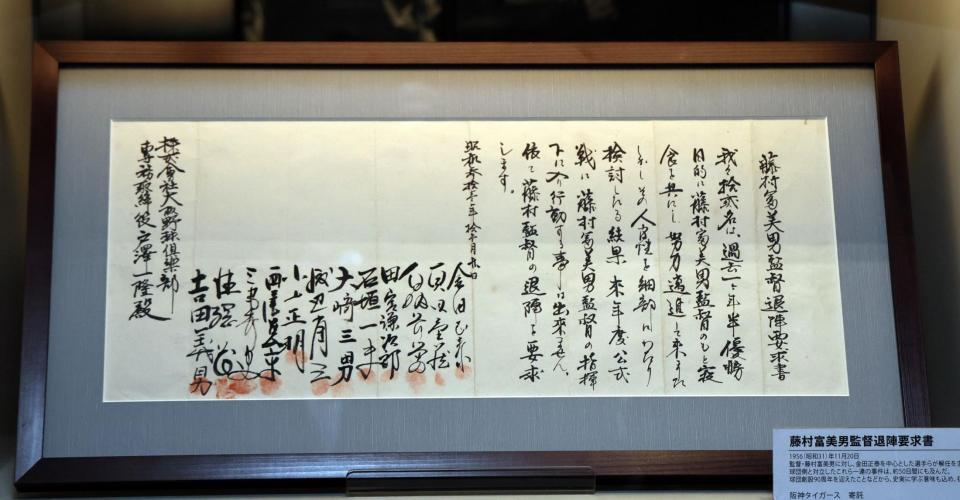 藤村冨美男監督退陣要求書
我々拾弐名は、過去一ヶ年半優勝
目的に藤村冨美男監督のもと寝
食を共にし努力邁進して来ました
しかしその人間性を細部にわたり
検討したる結果来年度公式
戦に藤村冨美男監督の指揮
下に入り行動する事は出来ません。
依て藤村監督の退陣を要求
します。
昭和参拾壱年拾壱月廿日
金田正泰
真田重蔵
白坂長栄
田宮謙次郎
石垣一夫
大崎三男
小山正明
吉田義男
株式会社大阪野球倶楽部
専務取締役戸澤一隆殿
藤村富美男監督退陣要求書
1956(昭和31)年11月20日
監督・藤村富美男に対し、金田正泰を中心とした選手らが解任を
球団側と対立したこれら一連の事件は、約50日間にも及んだ。
球団創設90周年を迎えたことなどから、史実に学ぶ意味も込め、
阪神タイガース 寄託